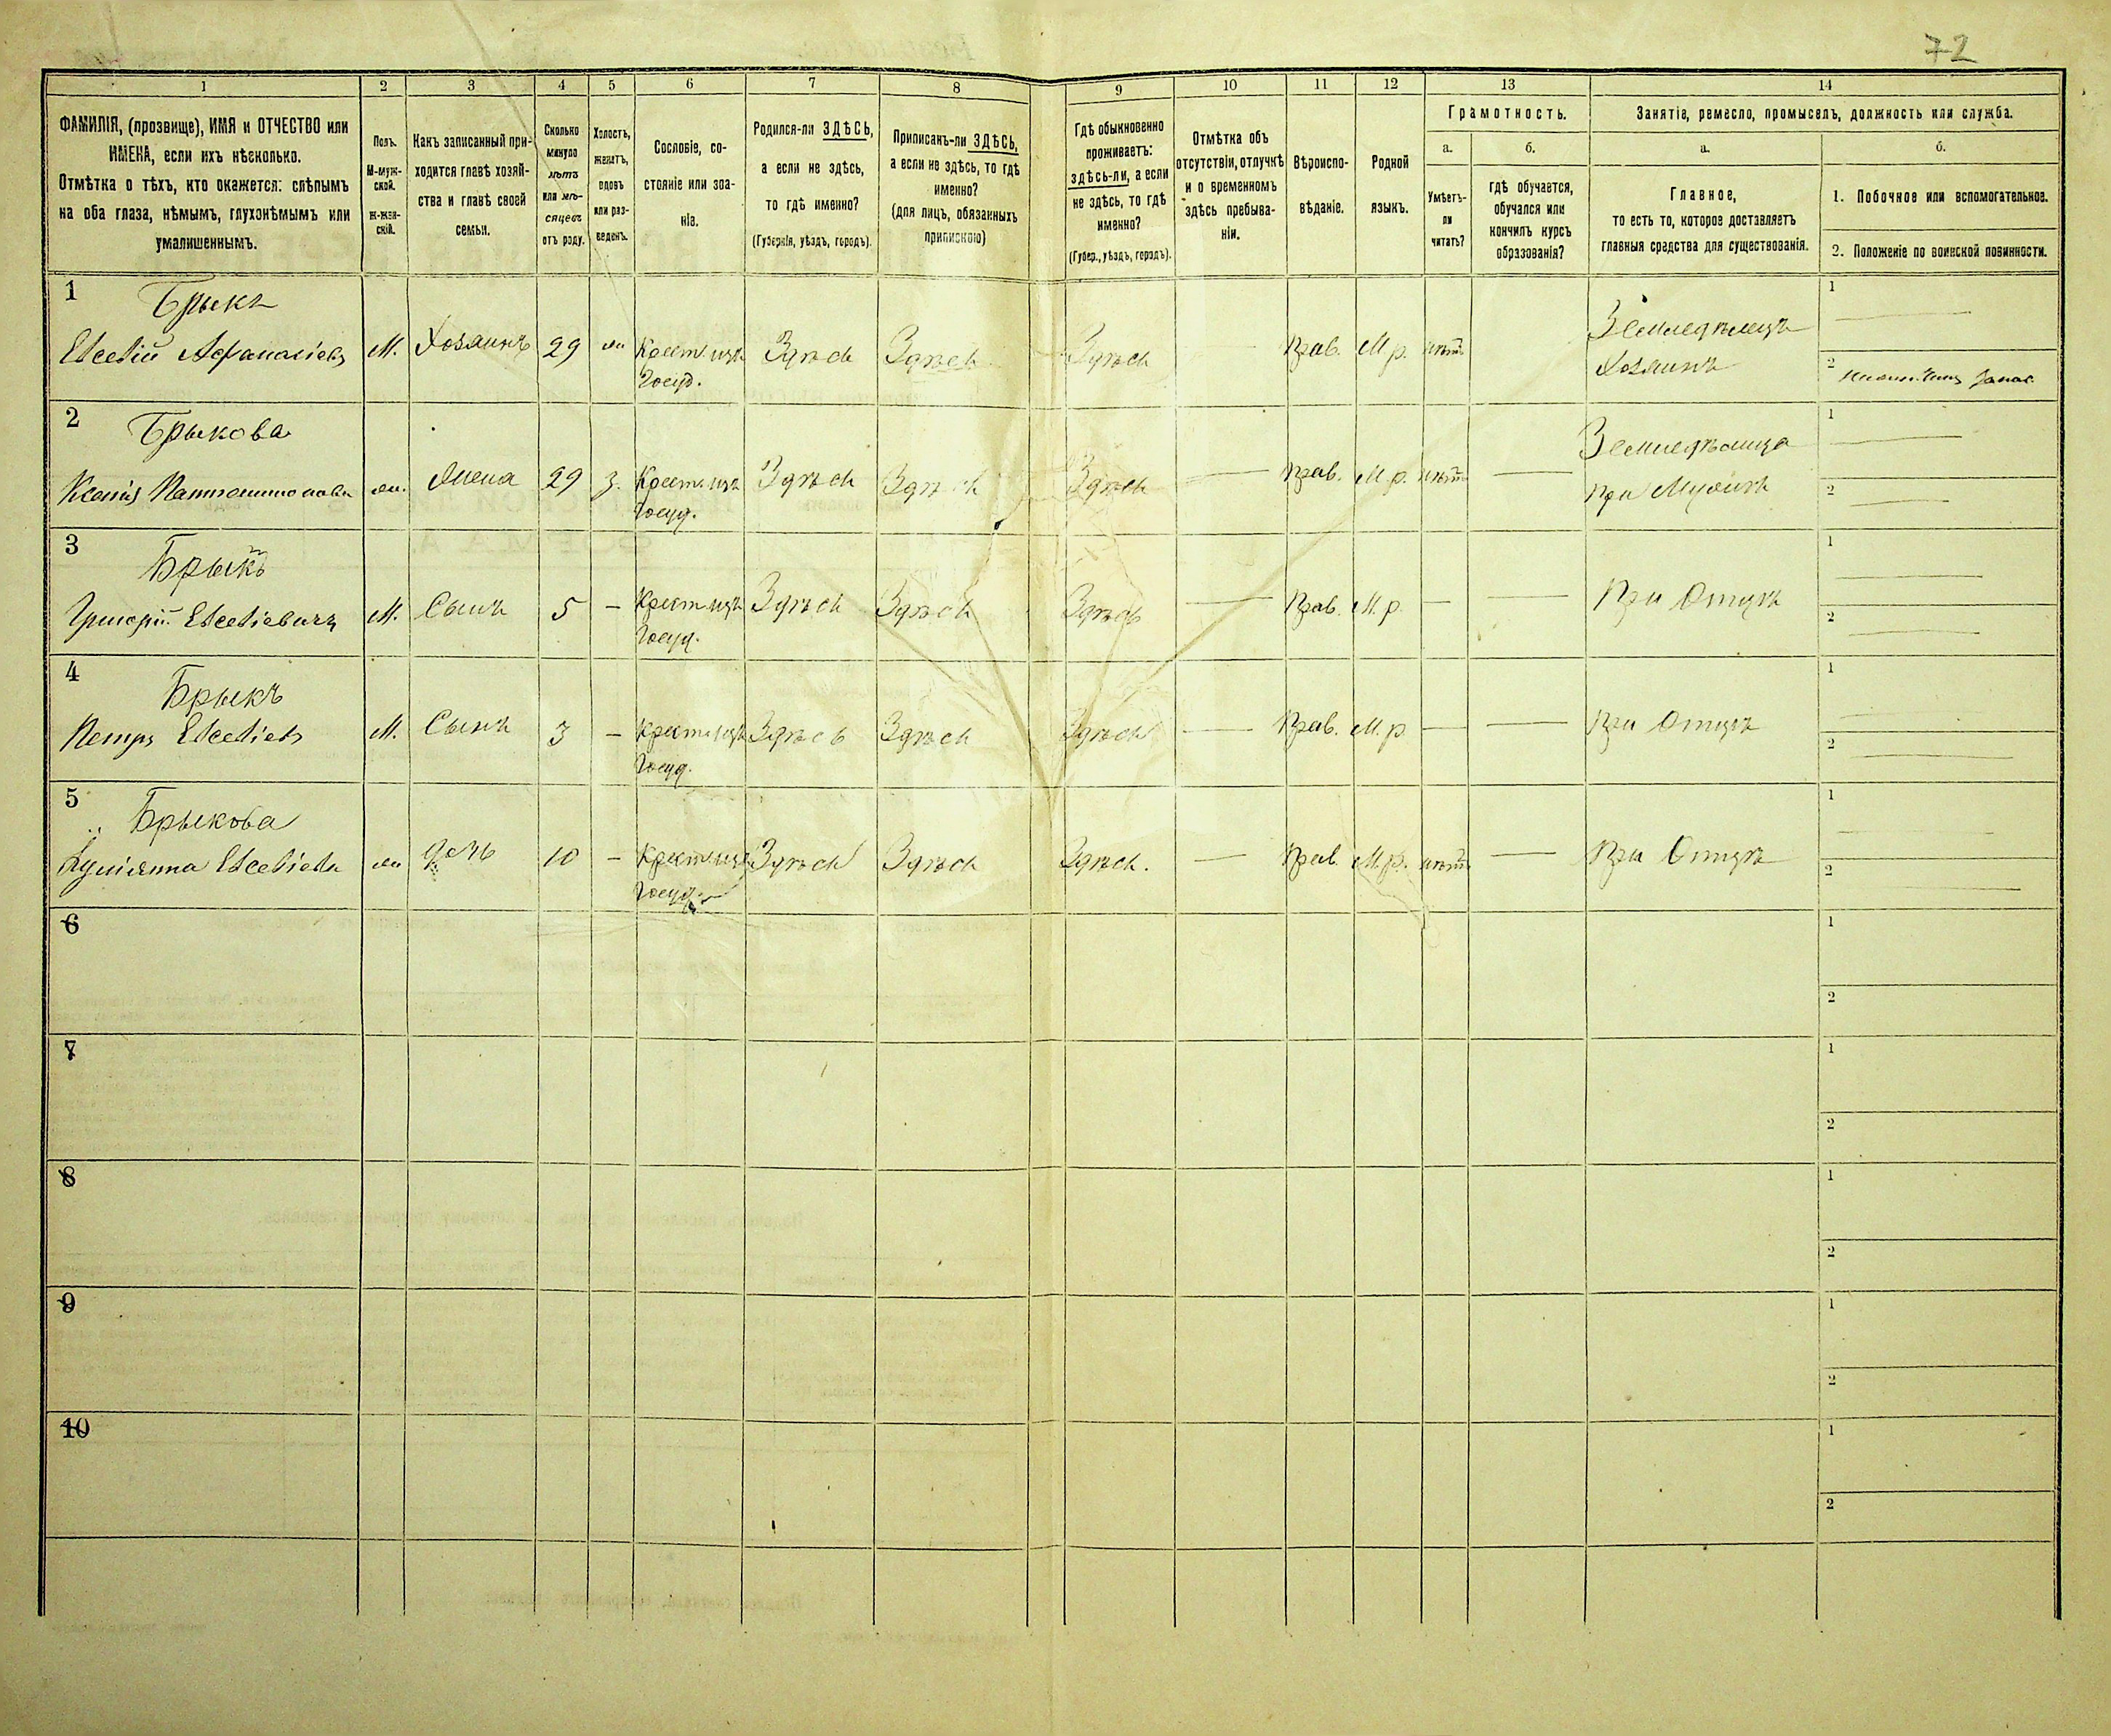 72
1 2 3 4 5 6 7 8 9 10 11 12 13 14
ФАМИЛІЯ, (прозвище), ИМЯ и ОТЧЕСТВО или
ИМЕНА, если ихъ нѣсколько.
Отмѣтка о тѣхъ, кто окажется: слѣпымъ
на оба глаза, нѣмымъ, глухонѣмымъ или
умалишеннымъ.
Полъ.
М-муж-
ской.
ж-жен-
скій.
Какъ записанный при-
ходится главѣ хозяй-
ства и главѣ своей
семьи.
Сколько
минуло
лѣтъ
или мѣ-
сяцевъ
отъ роду.
Холостъ,
женатъ,
вдовъ
или раз-
веденъ.
Сословіе, со-
стояніе или зва-
ніе.
Родился-ли ЗДѢСЬ,
а если не здѣсь,
то гдѣ именно?
(Губернія, уѣздъ, городъ).
Приписанъ-ли ЗДѢСЬ,
а если не здѣсь, то гдѣ
именно?
(для лицъ, обязанныхъ
припискою)
Гдѣ обыкновенно
проживаетъ:
здѣсь-ли, а если
не здѣсь, то гдѣ
именно?
(Губер., уѣздъ, городъ).
Отмѣтка объ
отсутствіи, отлучкѣ
и о временномъ
здѣсь пребыва-
ніи.
Вѣроиспо-
вѣданіе.
Родной
языкъ.
Грамотность.
а.
Умѣетъ-
ли
читать?
б.
гдѣ обучается,
обучался или
кончилъ курсъ
образованія?
Занятіе, ремесло, промыселъ, должность или служба.
а.
Главное,
то есть то, которое доставляетъ
главныя средства для существованія.
б.
1. Побочное или вспомогательное.
2. Положеніе по воинской повинности.
1 Брыкъ 1
Евсевій Афанасіевъ М. Хозяинъ 29 ж Крест. изъ Здѣсь Здѣсь Здѣсь — Прав. М р. нѣтъ Земледѣлецъ —
Госуд. Хозяинъ 2
2 Брыкова Земледѣлица 1 —
Ксенія жен. Жена 29 З. Крест. изъ Здѣсь Здѣсь Здѣсь — Прав. М р. нѣтъ — при Мужѣ 2 —
Госуд.
3 Брыкъ 1 —
Григорій Евсевіевичъ М. Сынъ 5 — Крест. изъ Здѣсь Здѣсь Здѣсь — Прав. М. р. — — При Отцѣ 2 —
Госуд.
4 Брыкъ 1 —
Петръ Евсевіевъ М. Сынъ 3 — Крест. изъ Здѣсь Здѣсь Здѣсь — Прав. М. р. — — При Отцѣ 2 —
Госуд.
5 Брыкова 1 —
Евсевіева жен дочь 10 — Крест. изъ Здѣсь Здѣсь Здѣсь. — Прав. М. р. нѣтъ — При Отцѣ 2 —
Госуд.
6 1
2
7 1
2
8 1
2
9 1
2
10 1
2